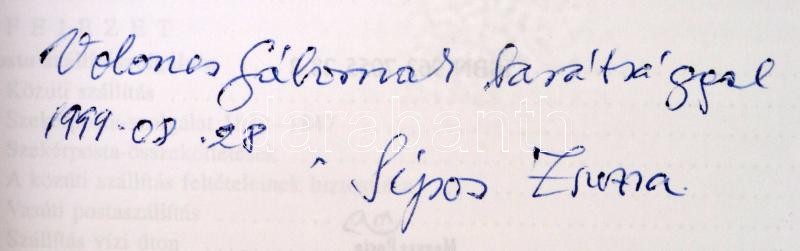 Volones Gábornak barátsággal
1999.08.28
Sipos Zsuzsa
FEJEZET
Közúti szállítás
Szekérposta-összeköttetések
A közúti szállítás feltételeinek
Vasúti postaszállítás
Szállítás vízi úton
darabanth